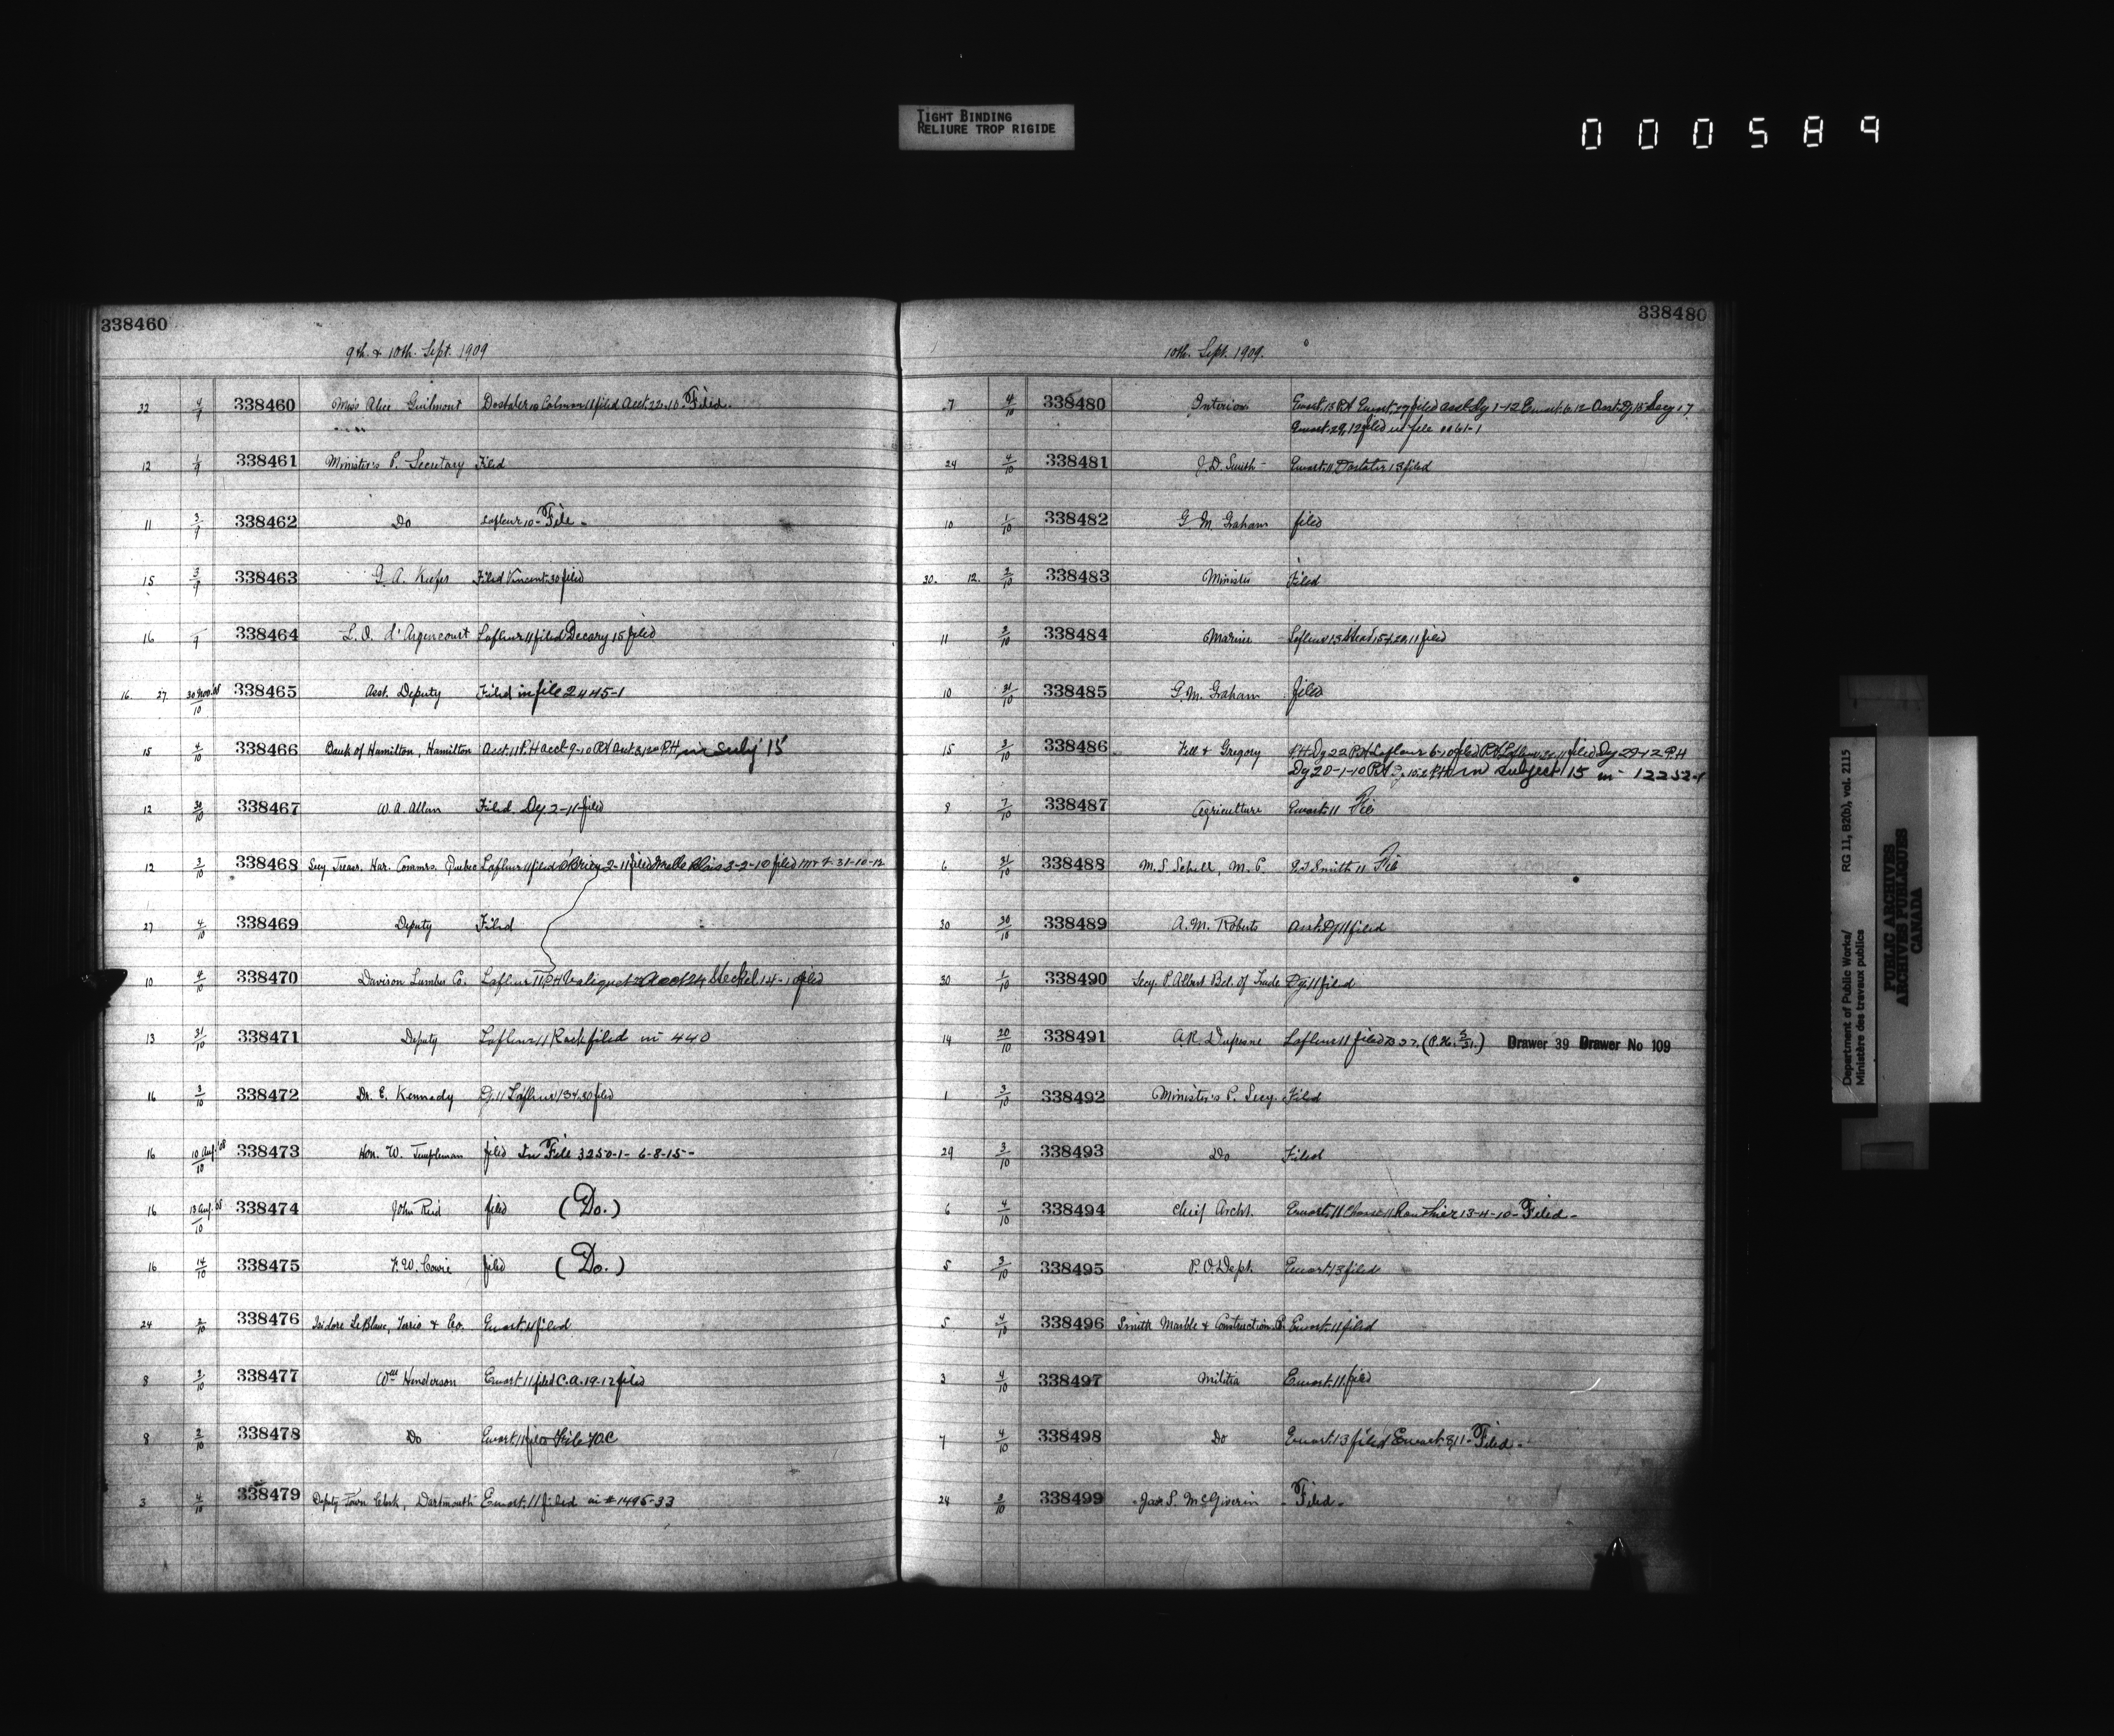 TIGHT BINDING
RELIURE TROP RIGIDE
000589
338460
9th. & 10th. Sept. 1909
22 4/9 338460 Miss Alice Guilmont Dostaler 10 filed Acct. 22-10- Filed.
12 1/9 338461 Minister's P. Secretary Filed
11 3/9 338462 Do Lafleur 10- File -
15 3/9 338463 G. A. Keefer Filed Vincent 30 filed
16 338464 L. O. d'Argencourt Lafleur 11 filed Decary 15 filed
16. 27. 30 Nov. '08/10 338465 Asst. Deputy Filed in file 2445-1
15 4/10 338466 Bank of Hamilton, Hamilton Acct. 11 P.H acct 9-10 P.H 15
12 30/10 338467 W. A. Allan Filed. Dy. 2-11-filed
12 3/10 338468 Secy Treasr. Har. Commrs. Quebec Lafleur 11 filed O'Brien 2-11 filed 3-2-10 filed 31-10-12
27 4/10 338469 Deputy Filed
10 4/10 338470 Davison Lumber Co. Lafleur 11 P.H Valiquet Steckel 14-1 filed
13 31/10 338471 Deputy Lafleur 11 filed in 440
16 3/10 338472 Dr. E. Kennedy Dy. 11 Lafleur 13 filed
16 10 Aug. '08/10 338473 Hon. W. Templeman filed In File 3250-1- 6-8-15-
16 13 Aug. '08/10 338474 John Reid filed (Do.)
16 14/10 338475 F. W. Cowie filed (Do.)
24 2/10 338476 Isidore LeBlanc, Terrio & Co. Ewart. 11 filed
8 2/10 338477 Wm Henderson Ewart. 11 filed C.A. 19-12 filed
8 2/10 338478 Do Ewart 11 filed File
3 4/10 338479 Deputy Town Clerk, Dartmouth Ewart. 11 filed in # 1495-33
338480
10th. Sept. 1909.
7 4/10 338480 Interior Ewart. 13 P.H Ewart. filed Dy 1-12 Ewart. 6-12 Asst. Dy 15 Secy 17
Ewart. 29, 12 filed in file
24 4/10 338481 J. D. Smith - Ewart. 11 Dostaler 13 filed
10 1/10 338482 G. M. Graham filed
30. 12. 3/10 338483 Minister Filed
11 3/10 338484 Marine Lafleur 13 filed
10 31/10 338485 G. M. Graham filed
15 3/10 338486 Kell & Gregory P.H. Dy 22 P.H Lafleur 6-10 filed P.H. filed Dy 29-12 P.H
Dy 20-1-10 P.H in subject 15 in 12252-1
8 7/10 338487 Agriculture Ewart. 11 File
6 31/10 338488 M. S. Schell, M. P. Smith 11 File
30 30/10 338489 A. M. Roberts Asst. Dy 11 filed
30 1/10 338490 Secy. P. Albert Bd. of Trade Dy. 11 filed
14 20/10 338491 A. R. Dufresne Lafleur 11 filed Drawer 39 Drawer No 109
1 3/10 338492 Minister's P. Secy. Filed
29 3/10 338493 Do Filed
6 4/10 338494 Chief Archt. Ewart. 11 Chasse 11 Routhier 13-4-10- Filed -
5 3/10 338495 P. O. Dept. Ewart. 13 filed
5 4/10 338496 Smith Marble & Construction Co. Ewart. 11 filed
3 4/10 338497 Militia Ewart. 11 filed
7 4/10 338498 Do Ewart. 13 filed Ewart 8, 11- Filed -
24 3/10 338499 Jas. S. McGiverin - Filed -
Department of Public Works/ RG 11, B2(b), vol. 2115
Ministère des travaux publics
PUBLIC ARCHIVES
ARCHIVES PUBLIQUES
CANADA